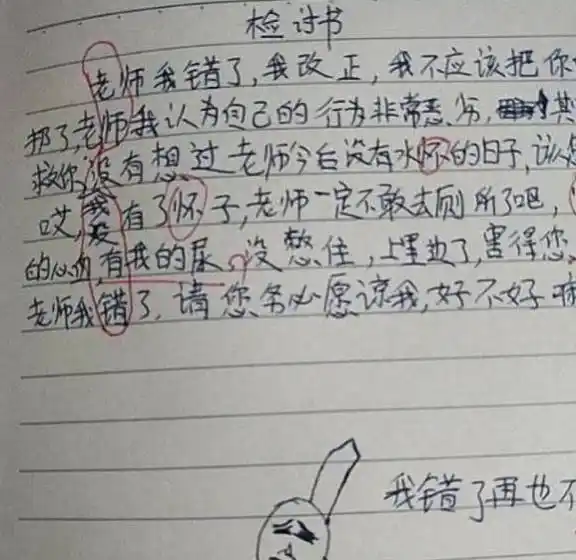 检讨书
老师我错了,我改正,我不应该把你
了,老师我认为自己的行为非常恶劣,其
没有想过老师今后没有水杯的日子,该怎
哎,我没有了怀子,老师一定不敢去厕所了吧,
的心血,有我的尿,没憋住,上里边了,害得您
老师我错了,请您务必愿谅我,好不好
我错了再也不